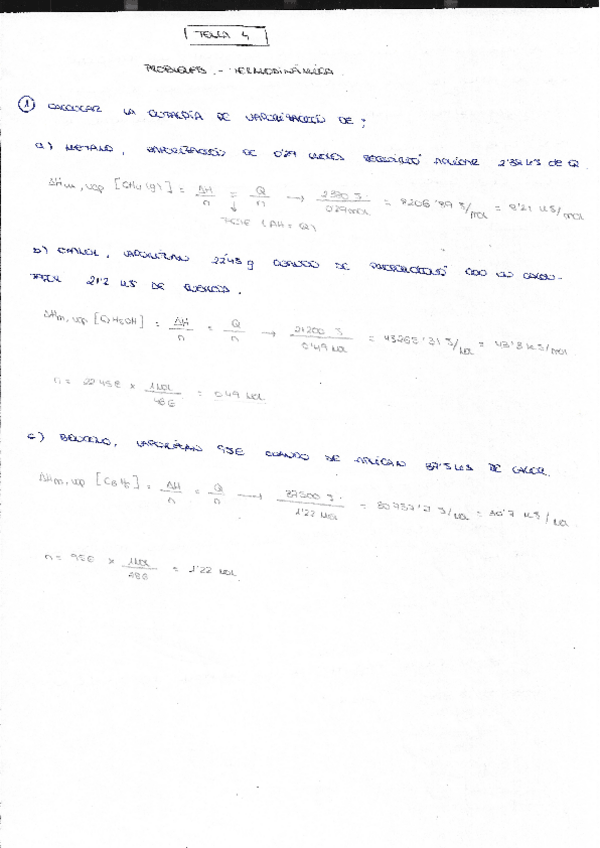 TEMA 4
PROBLEMAS.- TERMODINÁMICA.
① CALCULAR LA ENTALPÍA DE VAPORIZACIÓN DE;
a) METANO, VAPORIZACIÓN DE 0'29 MOLES REQUIRIÓ APLICAR 2'38 kJ de Q.
ΔHm, vap [CH4(g)] = ΔH/n = Q/n → 2380 J/0'29 mol = 8206'89 J/mol = 8'21 kJ/mol
(ΔH = Q)
b) ETANOL, VAPORIZAN 22'45 g CUANDO SE PROPORCIONÓ CALOR
21'2 kJ DE ENERGÍA.
ΔHm, vap [C2H5OH] = ΔH/n = Q/n → 21200 J/0'49 mol = 43265'31 J/mol = 43'3 kJ/mol.
n = 22'45g × 1mol/46g = 0'49 mol.
c) BENCENO, VAPORIZAN 95g CUANDO SE APLICAN 37'5 kJ DE CALOR.
ΔHm, vap = ΔH/n = Q/n → 37500 J./1'22 mol = 30737'7 J/mol = 30'7 kJ/mol.
n = 95g × 1mol/78g = 1'22 mol.